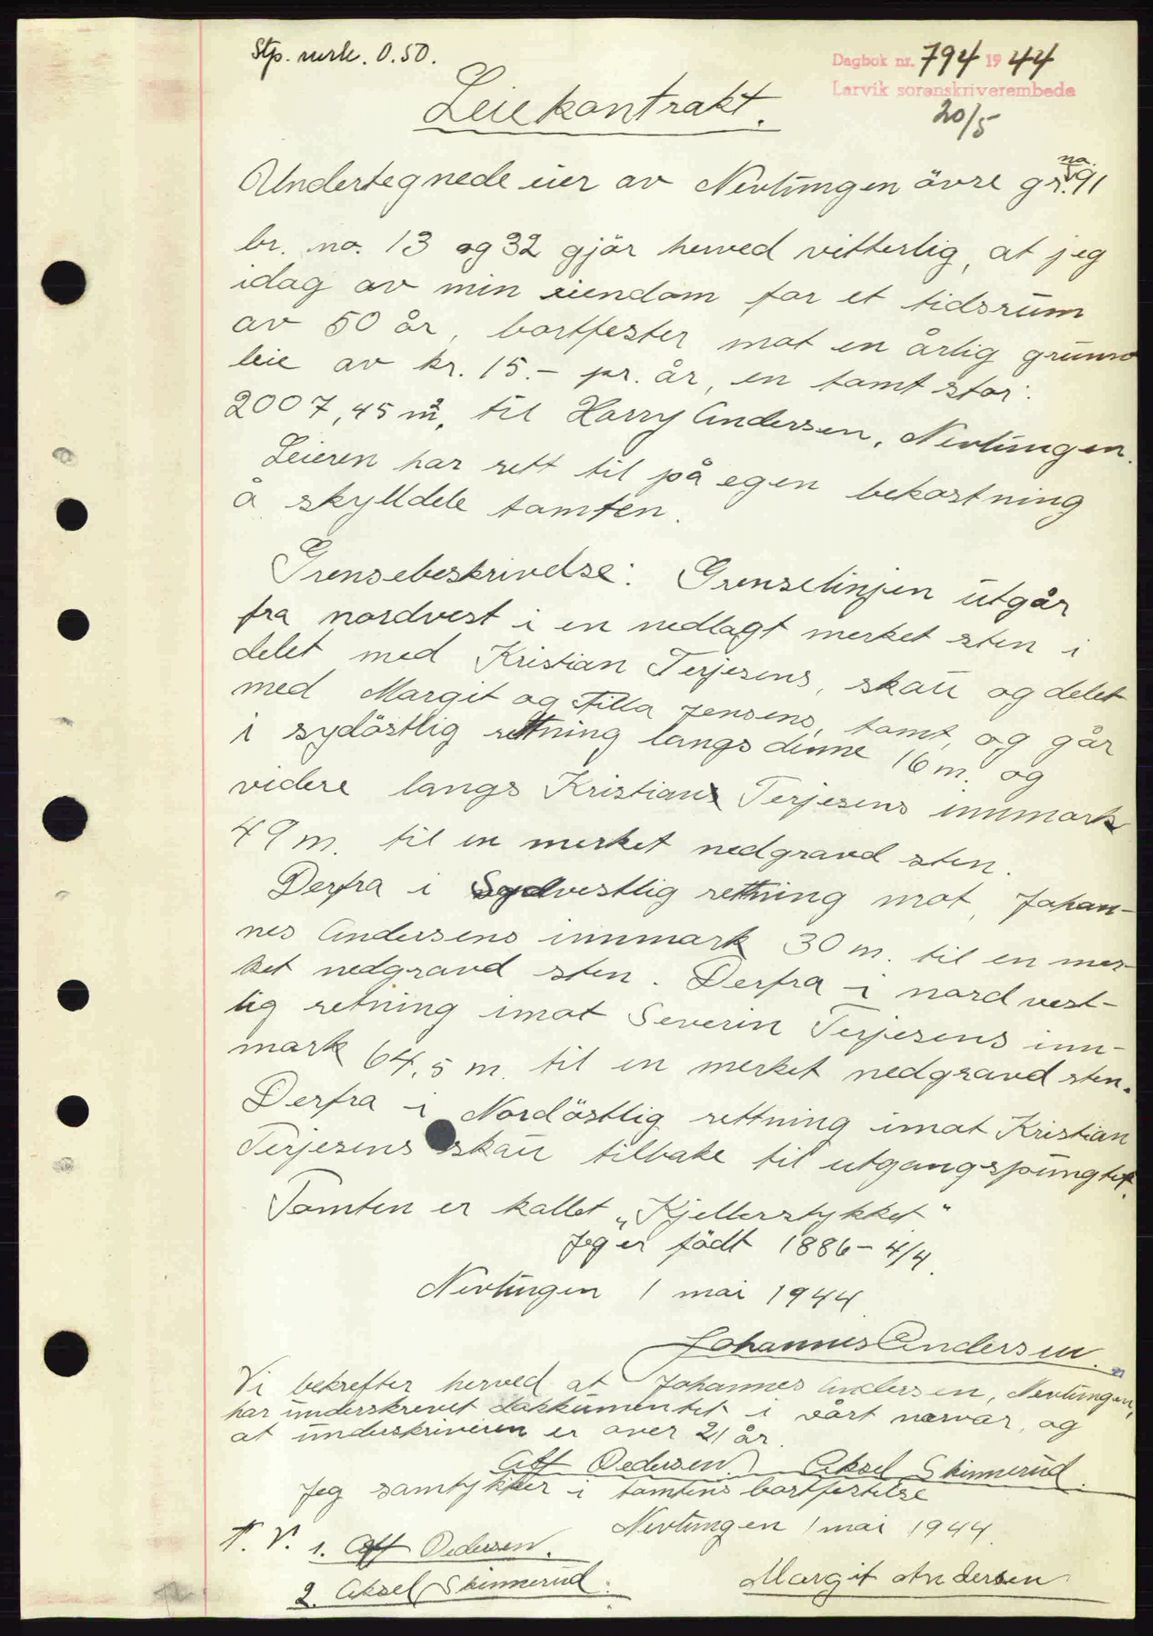 Stp. merk. 0.50.
Dagbok nr. 794 1944
Larvik sorenskriverembede
20/5
Leiekontrakt.
Undertegnede eier av Nevlungen övre gr. no. 91
br. no. 13 og 32 gjör herved vitterlig, at jeg
idag av min eiendom for et tidsrum
av 50 år, bortfester mot en årlig grunn
leie av kr. 15.- pr. år, en tomt stor:
2007,45 m2, til Harry Andersen, Nevlungen.
Leieren har rett til på egen bekostning
å skylldele tomten.
Grensebeskrivelse: Grenselinjen utgår
fra nordvest i en nedlagt merket sten i
delet med Kristian Terjesens, skau og delet
med Margit og Tilla Jensens, tomt, og går
i sydöstlig rettning langs denne 16 m. og
videre langs Kristians Terjesens innmark
49 m. til en merket nedgravd sten.
Derfra i Sydvestlig rettning mot, Johan-
nes Andersens innmark 30 m. til en mer-
ket nedgravd sten. Derfra i nordvest-
lig retning imot Severin Terjesens inn-
mark 64,5 m. til en merket nedgravd sten.
Derfra i Nordöstlig rettning imot Kristian
Terjesens skau tilbake til utgangspungtet.
Tomten er kallet "Kjellerstykket"
Jeg er födt 1886 - 4/4.
Nevlungen 1 mai 1944
Johannes Andersen.
Vi bekrefter herved at Johannes Andersen, Nevlungen,
har underskrevet dokkumentet i vårt nærvær, og
at underskriveren er over 21 år.
Alf Pedersen. Aksel Skinnerud.
Jeg samtykker i tomtens bortfestelse
Nevlungen 1 mai 1944.
T. V. 1. Alf Pedersen.
2. Aksel Skinnerud.
Margit Andersen